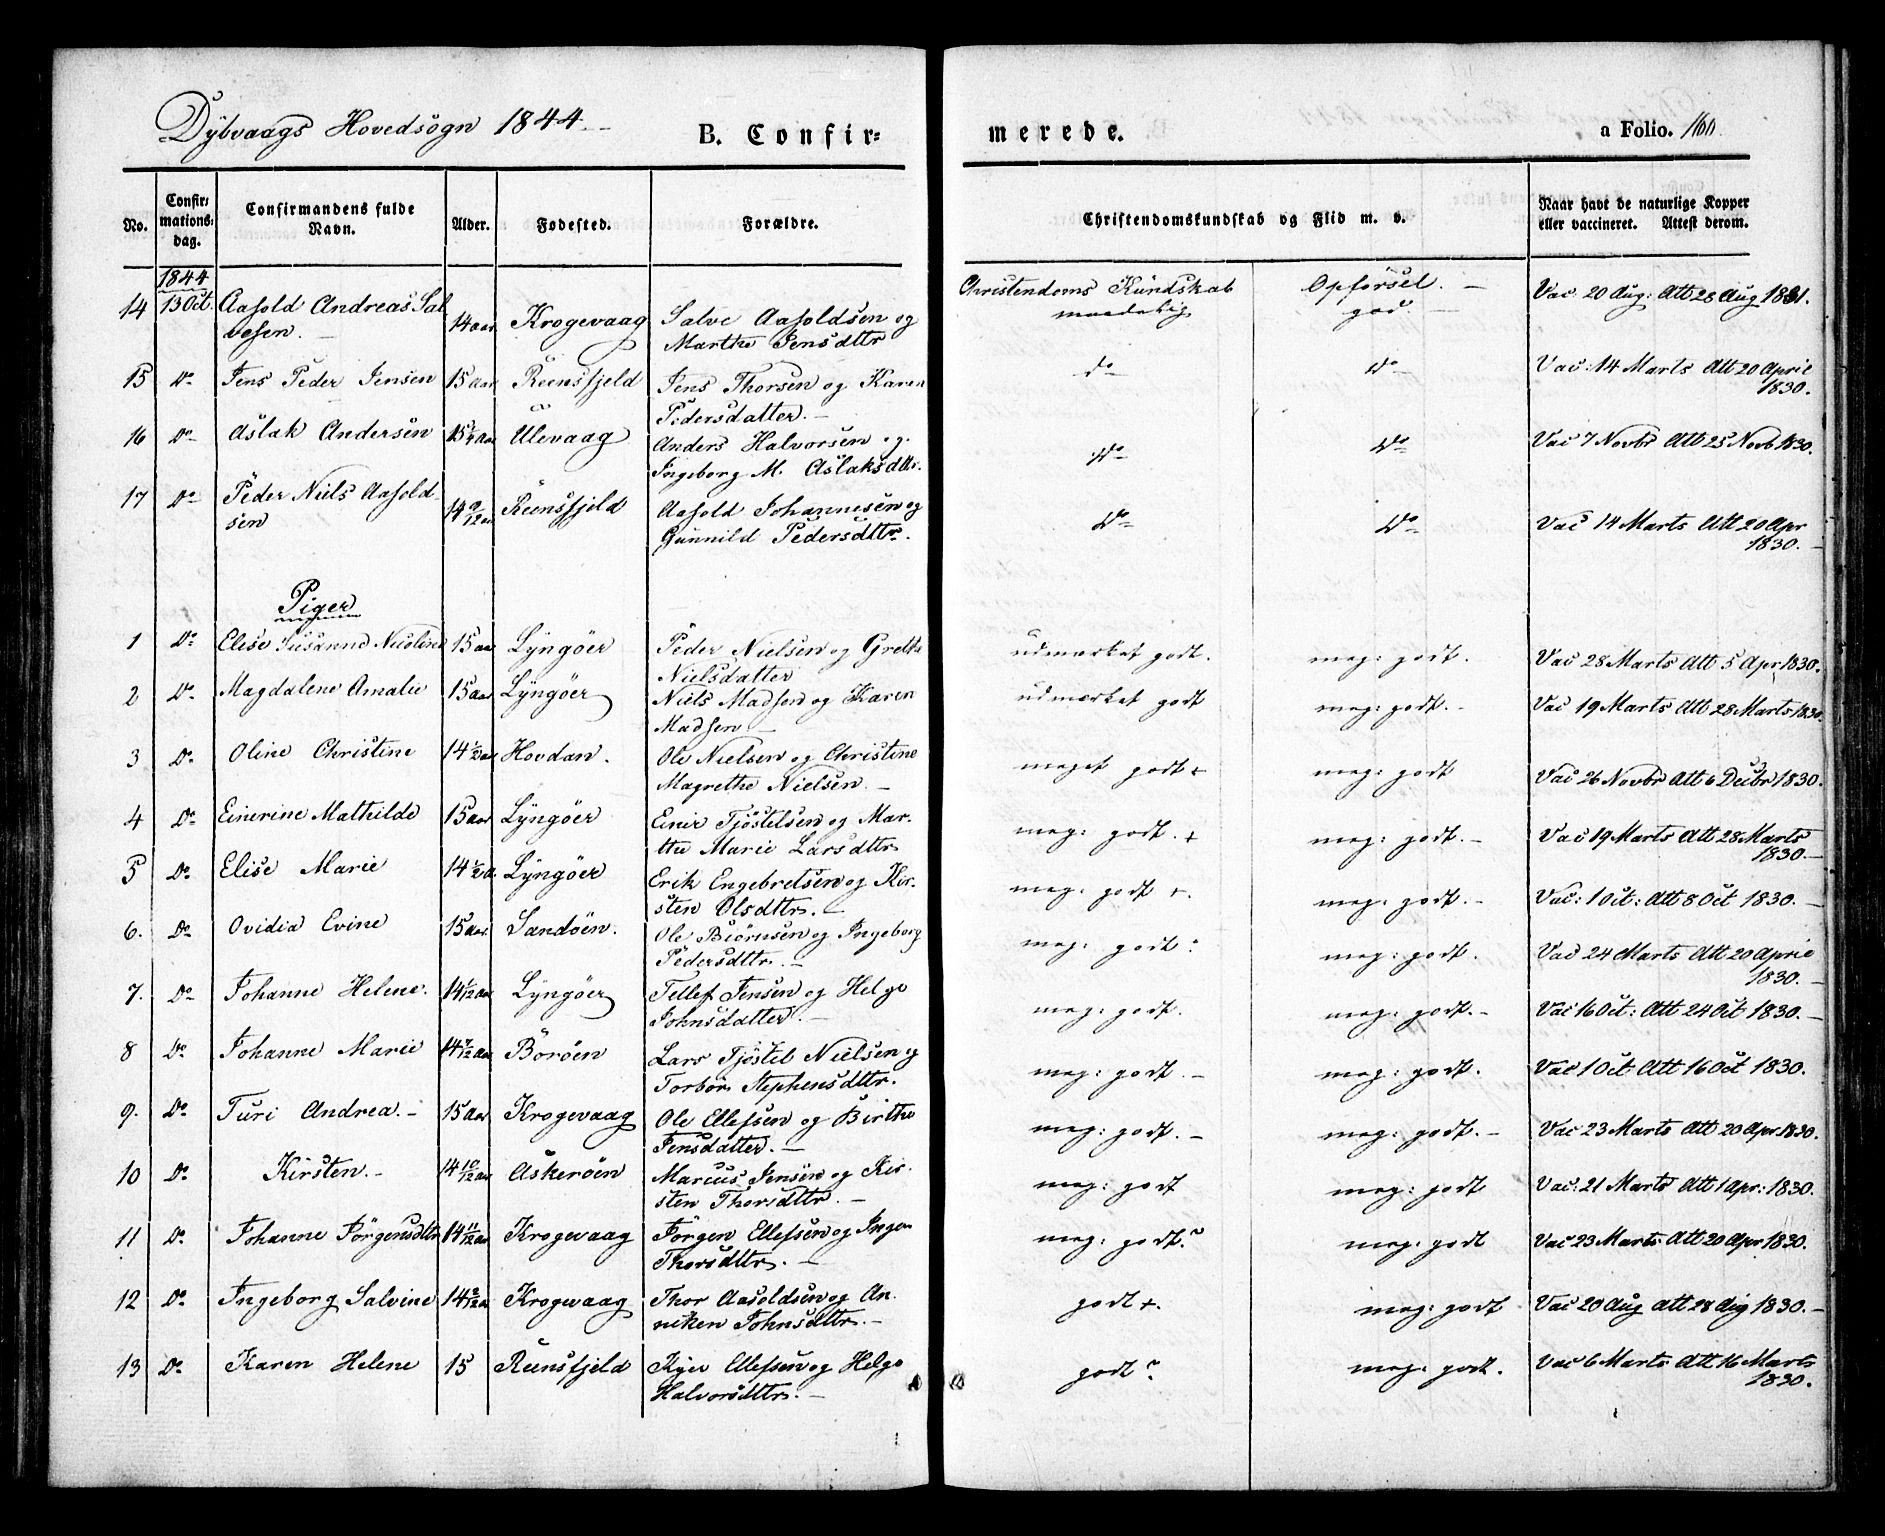 Dybvaags Hovedsogn 1844.
B. Confir=
merede.
a Folio. 160.
No.
Confir=
mations=
dag.
Confirmandens fulde
Navn.
Alder.
Fødested.
Forældre.
Christendomskundskab og Flid m. v.
Naar havt de naturlige Kopper
eller vaccineret. Attest derom.
1844
Christendoms Kundskab Opførsel.
14 13 Oct. Aasold Andreas Sal
vesen. 14 aar Krogevaag Salve Aasoldsen og
Marthe Jensdttr maadelig god Vac 20 Aug: Att 28 Aug 1831.
15 Do Jens Peder Jensen 15 Aar Reensfjeld Jens Thorsen og Karen
Pedersdatter. do do Vac: 14 Marts Att 20 April
1830.
16 Do Aslak Andersen Ulevaag Anders Halvorsen og
Ingeborg M. Aslaksdttr. Do Do Vac 7 Novbr Att 25 Novb 1830.
17 Do Peder Niels Aasold-
sen 14 9/12 aar Reensfjeld Aasold Johannesen og
Gunnild Pedersdttr. Do Do Vac 14 Marts Att 20 Apr
1830.
Piger
1 Do Elise Susanne Nicoline 15 aar Lyngöer Peder Nielsen og Grethe
Nielsdatter udmærket godt. meg: godt. Vac 28 Marts Att 5 Apr 1830.
2 Do Magdalene Amalie 15 aar Lyngöer Niels Madsen og Karen
Madsen udmærket godt meg: godt. Vac 19 Marts Att 28 Marts 1830.
3 Do Oline Christine 14 1/2 aar Hovdan. Ole Nielsen og Christine
Magrethe Nielsen. meget godt + meg: godt Vac 26 Novbr Att 6 Decbr 1830.
4 Do Einerine Mathilde 15 aar Lyngöer Einer Tjöstelsen og Mar-
the Marie Larsdttr meg: godt. + meg: godt. Vac 19 Marts Att 28 Marts
1830.
5 Do Elise Marie 14 1/2 A. Lyngöer Erik Engebretsen og Kir-
sten Olsdttr. meg: godt +. meg: godt. Vac: 1 Oct: Att 8 Oct 1830.
6. Do Ovidia Evine 15 aar. Sandöen. Ole Biörnsen og Ingeborg
Pedersdttr. meg: godt meg: godt. Vac 24 Marts Att 20 April
1830.
7. Do Johanne Helene. 14 1/12 Aar Lyngöer Tellef Jensen og Helge
Johnsdatter. meg: godt. meg: godt. Vac 16 Oct: Att 24 Oct 1830.
8 Do Johanne Marie 14 7/12 Aar Boröen Lars Tjöstel Nielsen og
Torbör Stephensdttr. meg: godt. meg: godt. Vac 1 Oct Att 16 Oct 1830.
9. Do Turi Andrea. 15 Aar Krogevaag Ole Ellefsen og Birthe
Jensdatter. meg: godt. meg: godt. Vac 23 Marts Att 20 Apr 1830.
10 Do Kirsten. 14 10/12 aar Askeröen Marcus Jensen og Kir-
sten Thorsdttr. meg: godt meg: godt Vac: 21 Marts Att 1 Apr: 1830.
11 Do Johanne Jörgensdttr 14 11/12 aar Krogevaag Jörgen Ellefsen og Inger
Thorsdttr. meg: godt. meg: godt Vac 23 Marts Att 20 Apr 1830.
12 Do Ingeborg Salvine 14 2/12 Krogevaag Thor Aasoldsen og An-
niken Johnsdttr. godt +. meg: godt Vac 20 Aug att 28 Aug 1830.
13 Do Karen Helene 15 Reensfjeld Kjer Ellefsen og Helge
Halvorsdttr. godt meg: godt. Vac 6 Marts Att 16 Marts
1830.